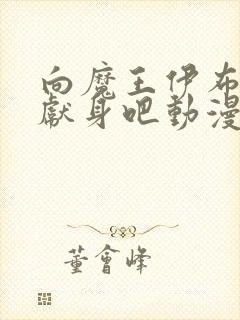 向魔王伊布
獻身吧動漫
董會峰